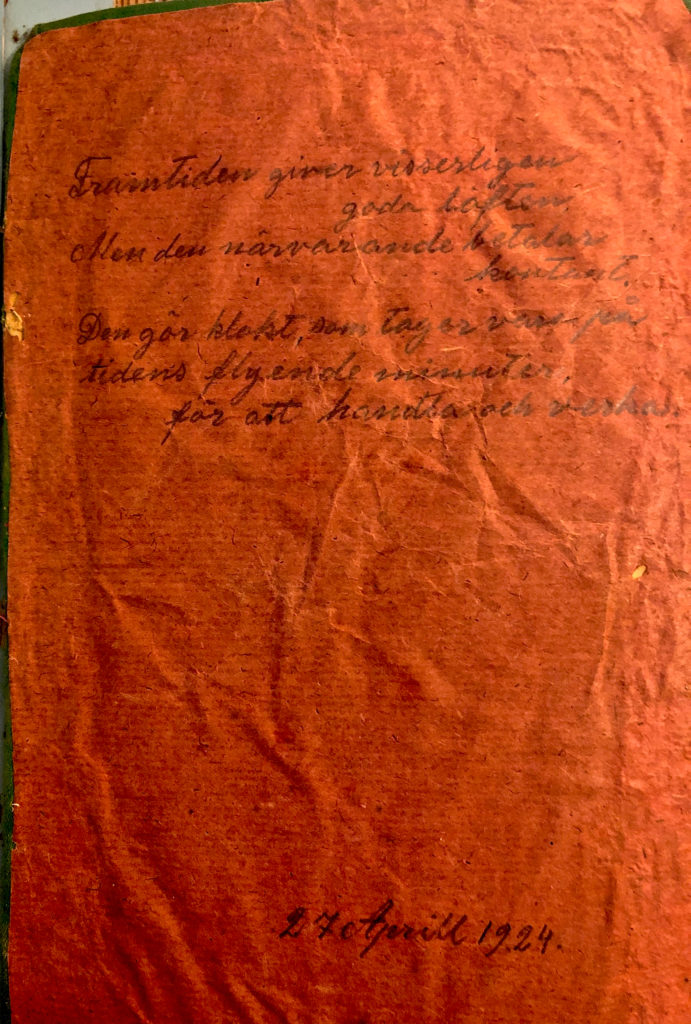 Framtiden giver visserligen
goda löften.
Men den närvarande betalar
kontant.
Den gör klokt, som tager vara på
tidens flyende minuter,
för att handla och verka.
27 Aprill 1924.